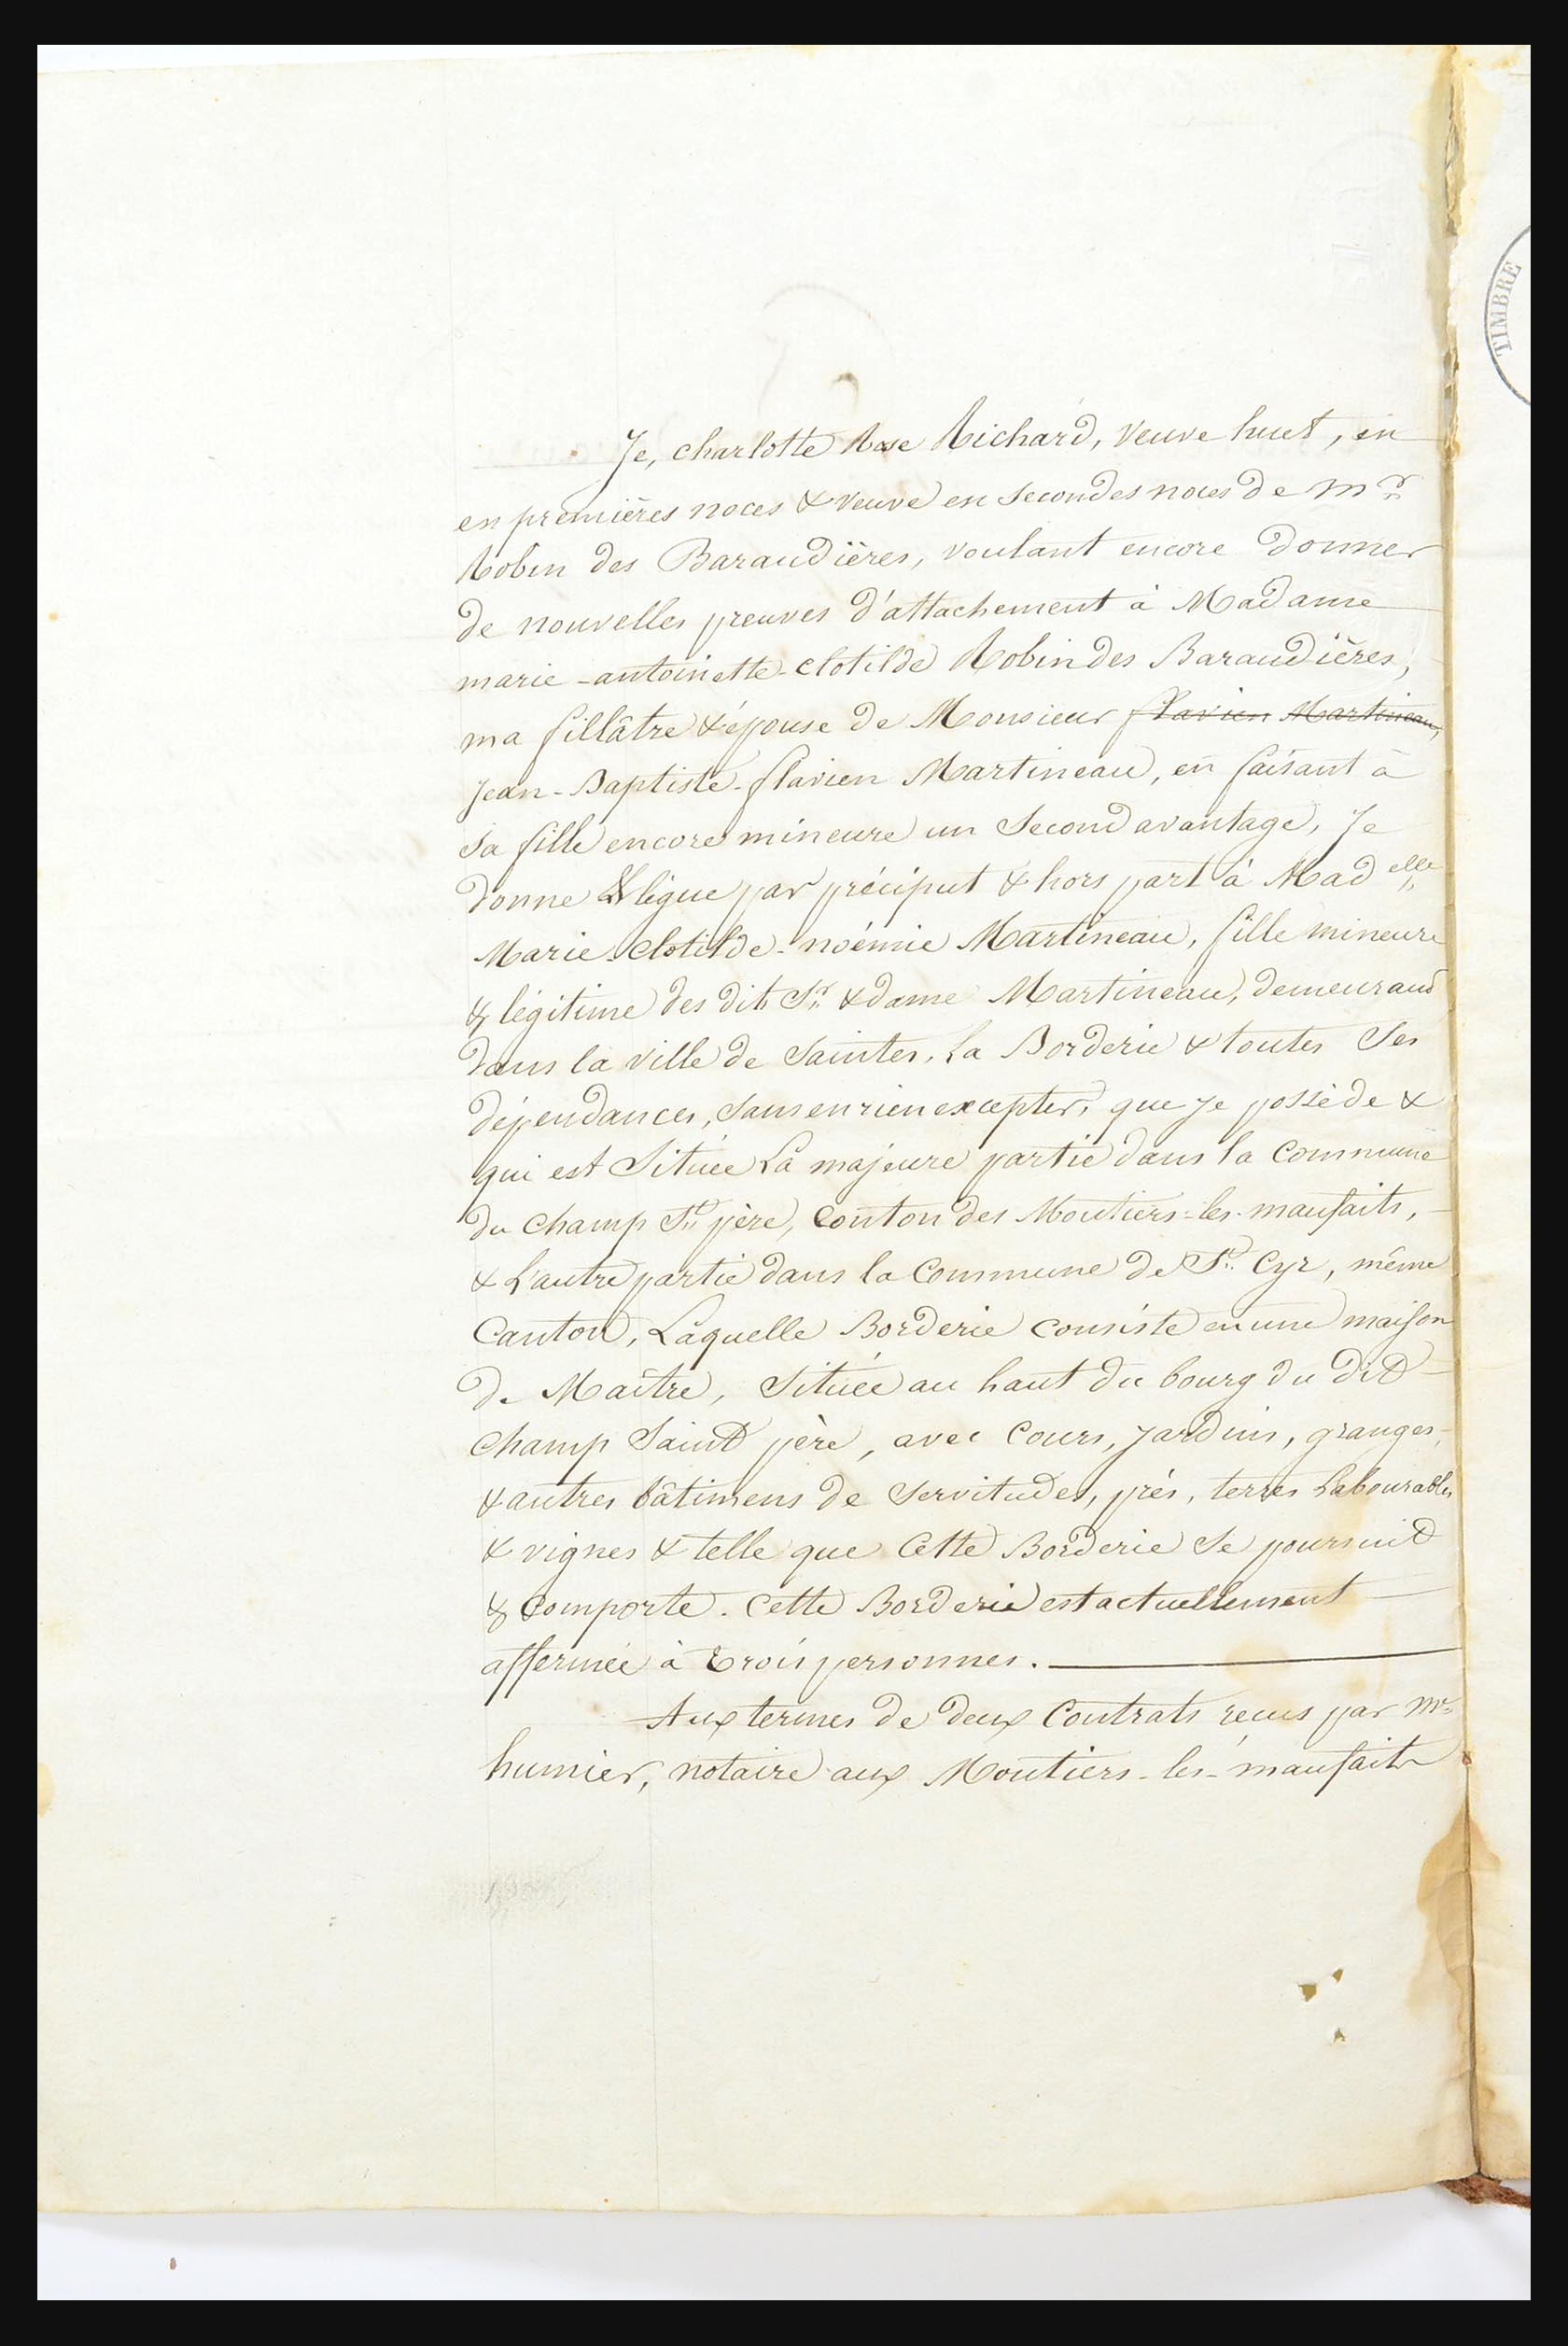 Je, charlotte Rose Richard, Veuve huet, en
en premières noces & veuve en secondes noces de Mr
Robin des Baraudières, voulant encore donner
de nouvelles preuves d'attachement à Madame
marie-antoinette-clotilde Robin des Baraudières,
ma fillâtre & épouse de Monsieur flavien Martineau,
Jean-Baptiste-flavien Martineau, en faisant à
sa fille encore mineure un Second avantage, Je
donne & lègue par préciput & hors part à Madelle
Marie-clotilde-noémie Martineau, fille mineure
& légitime des dits Sr & dame Martineau, demeurand
dans la ville de Saintes, La Borderie & toutes Ses
dépendances, Sans en rien excepter, que je possède &
qui est Située La majeure partie dans la Commune
du Champ St père, Conton des Moutiers-les-maufaits,
& L'autre partie dans la Commune de St Cyr, même
Canton, Laquelle Borderie consiste en une maison
de Maître, Située au haut du bourg du dit
Champ Saint père, avec Cours, Jardins, granges,
& autres bâtimens de Servitudes, prés, terres Labourables
& vignes & telle que Cette Borderie Se poursuit
& Comporte. Cette Borderie est actuellement
affermée à trois personnes.
Aux termes de deux Contrats reçus par Mr
humier, notaire aux Moutiers-les-maufaits
TIMBRE